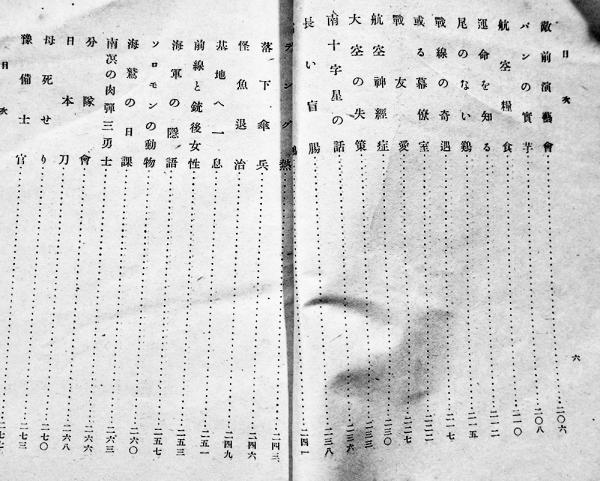 目次
敵前演藝會……二〇六
パンの實芋……二〇八
航空糧食……二一〇
運命を知る……二一二
尾のない鷄……二一五
戰線の奇遇……二一七
或る幕僚室……二二二
戰友愛……二二七
航空神經症……二三〇
大空の失策……二三三
南十字星の話……二三八
長い盲腸……二四一
六
デング熱……二四三
落下傘兵……二四六
怪魚退治……二四九
基地へ一息……二五一
前線と銃後女性……二五三
海軍の隱語……二五七
ソロモンの動物……二六〇
海鷲の日課……二六三
南溟の肉彈三勇士……二六六
分隊會……二六八
日本刀……二七〇
母死せり……二七三
豫備士官
目次